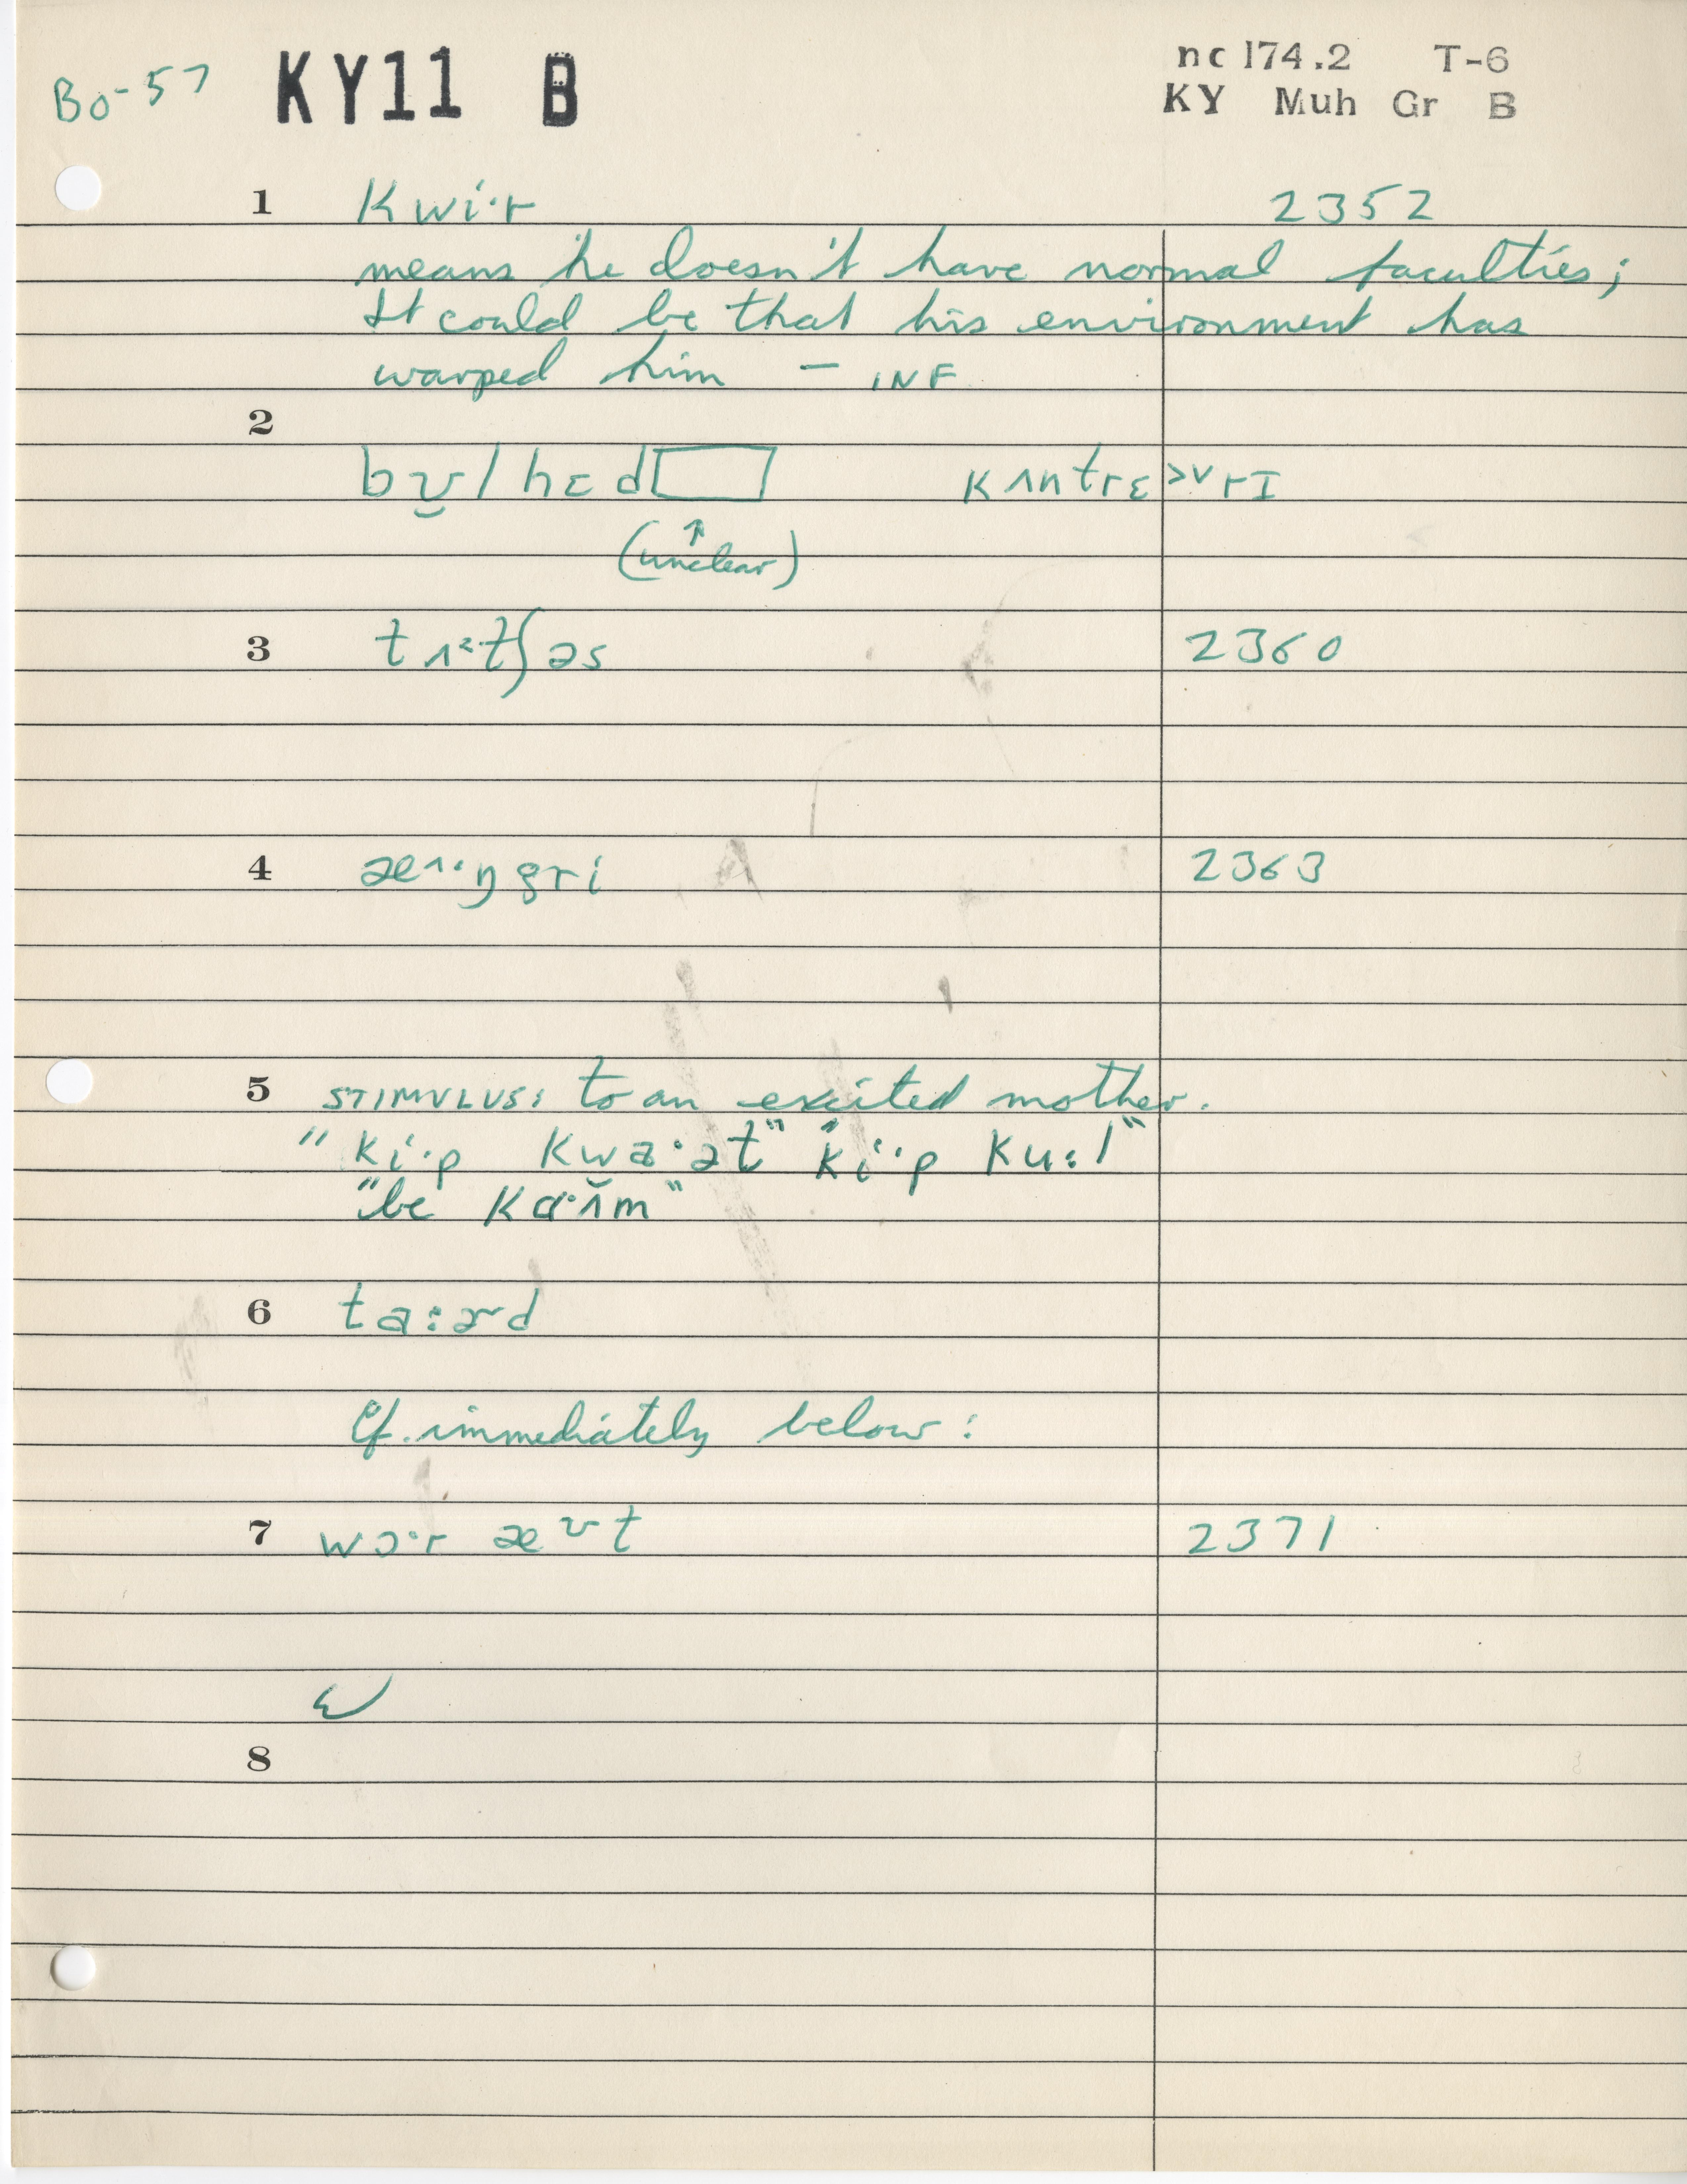 Bo-57 KY11 B nc 174.2 T-6
KY Muh Gr B
1 Kwi·r 2352
means he doesn't have normal faculties;
It could be that his environment has
warped him – INF
2
bʊ̯l hɛd Kʌntrɛ>ᵛrI
↑
(unclear)
3 tʌ·tʃəs 2360
4 æ^·ŋgri 2363
5 STIMULUS: to an excited mother.
"ki·p Kwa·ət" "ki·p Ku:l"
"be Kɑ·ʌ̆m"
6 ta:ɚd
Cf. immediately below:
7 wɔ·r æᶷt 2371
8